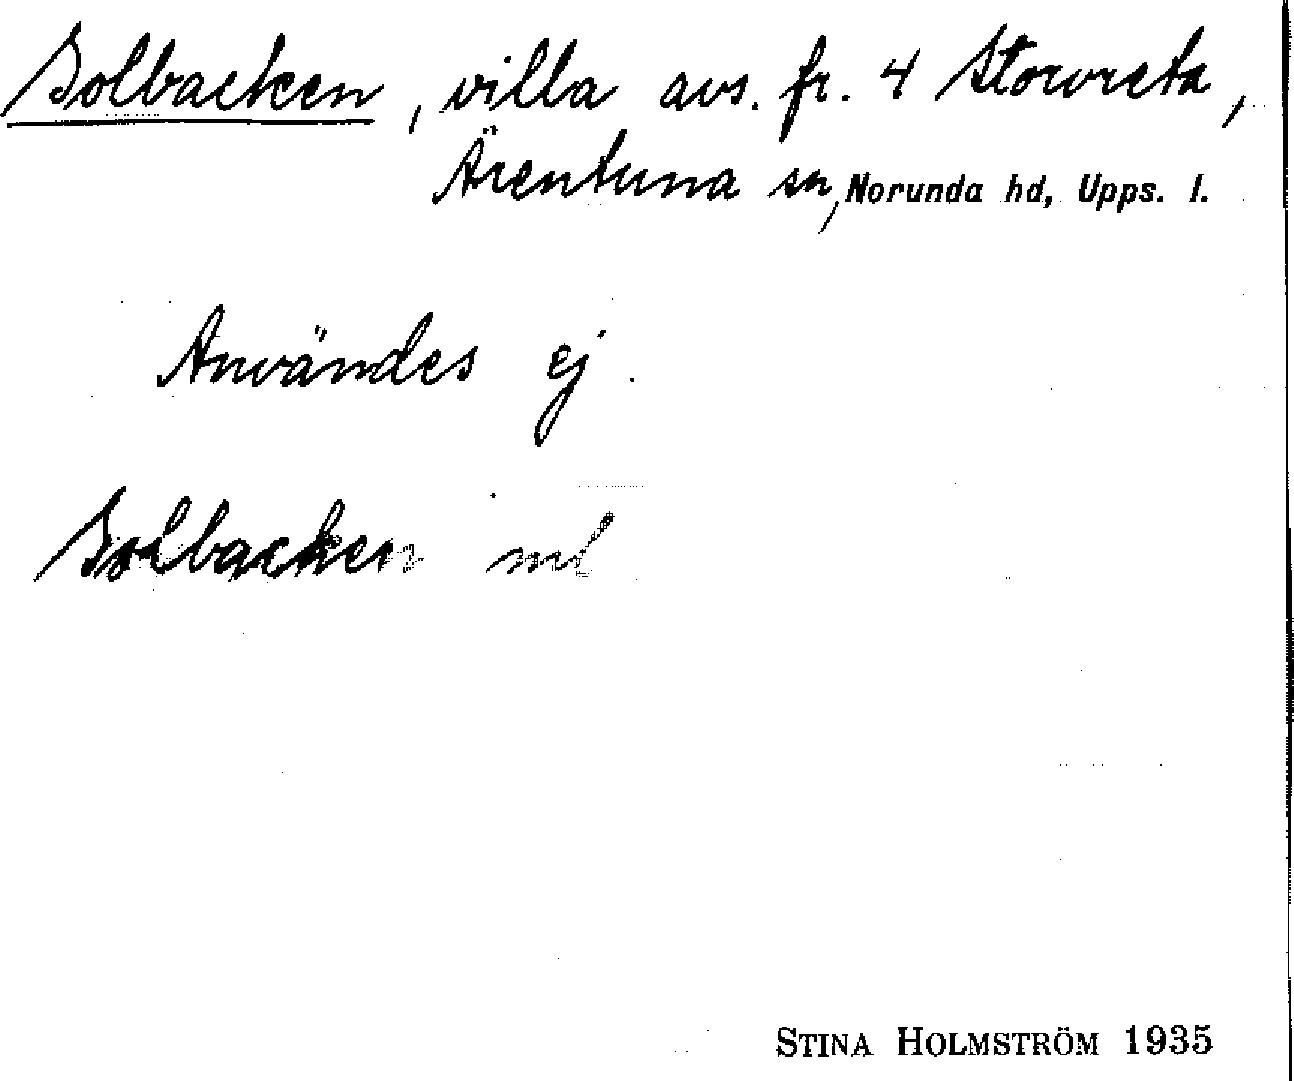 Solbacken, villa avs. fr. 4 Storvreta,
Ärentuna sn, Norunda hd, Upps. l.
Användes ej.
Solbacken
STINA HOLMSTRÖM 1935